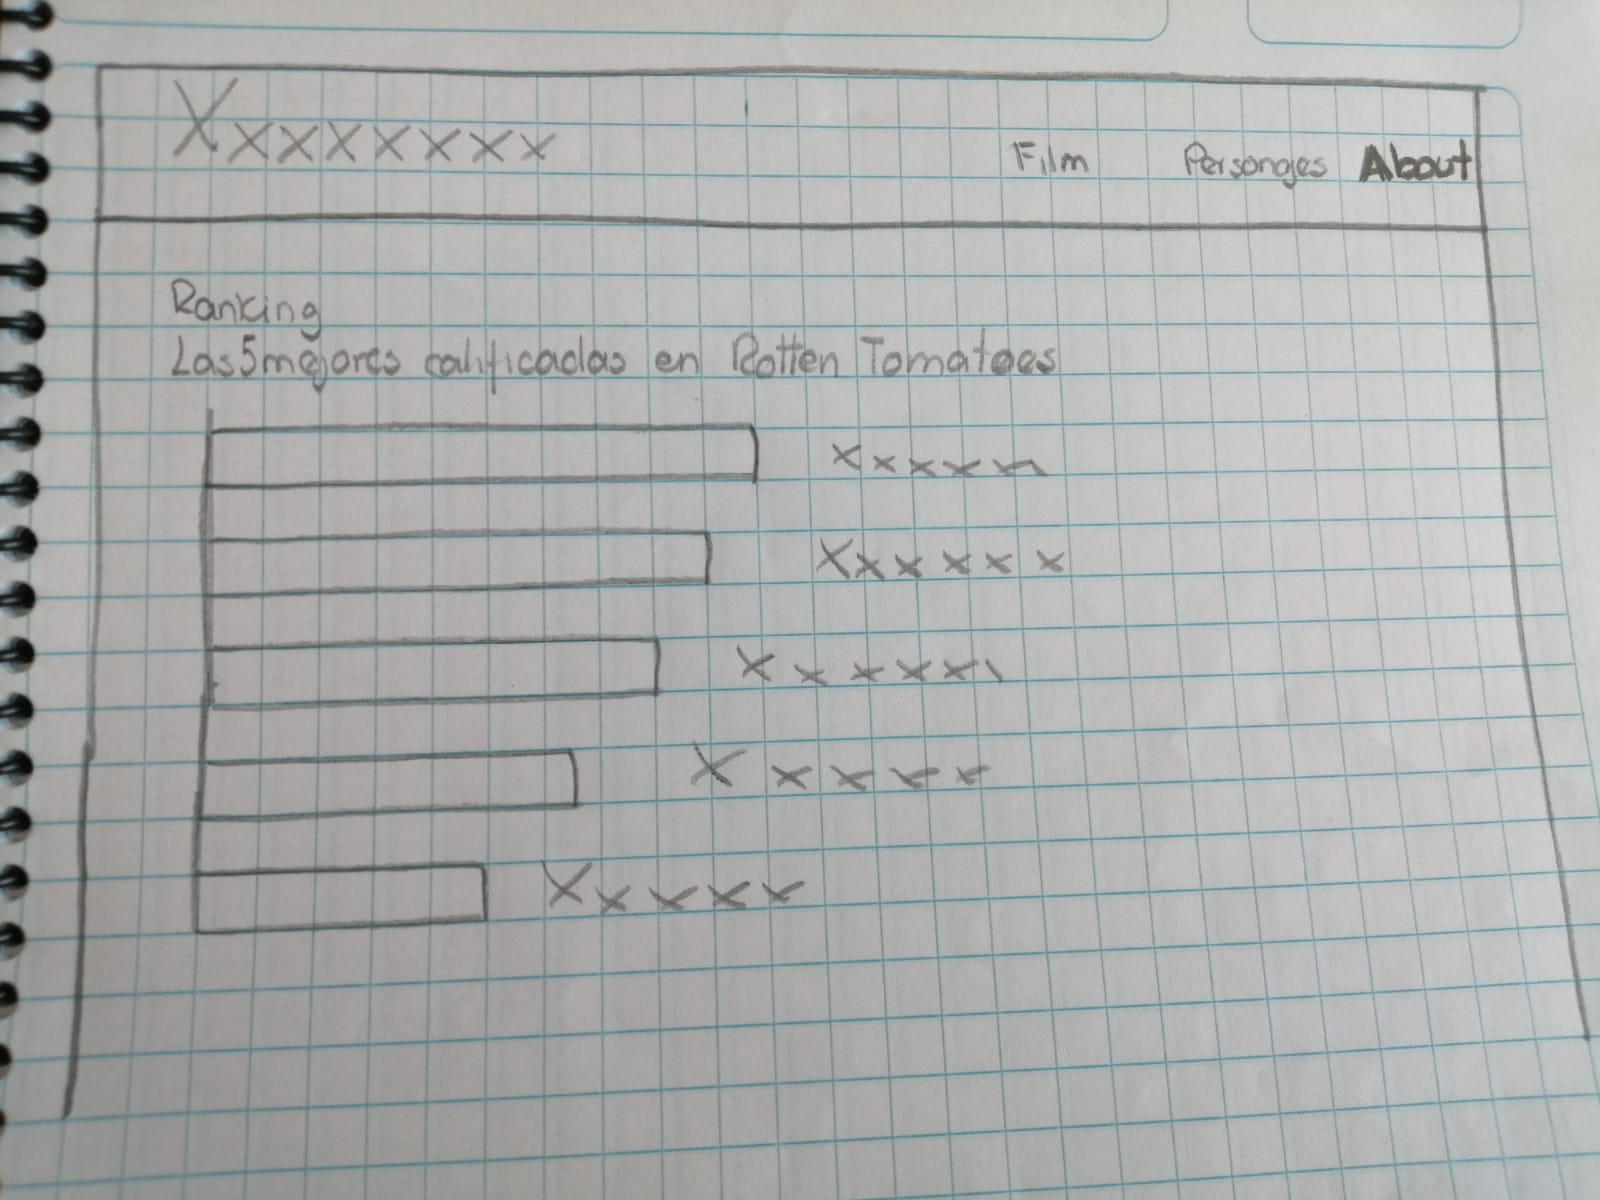 Xxxxxxxx
Film Personges About
Ranking
Las 5 mejores calificadas en Rotten Tomatoes
xxxxx
Xxxxxx
Xxxxx
Xxxxx
Xxxxx